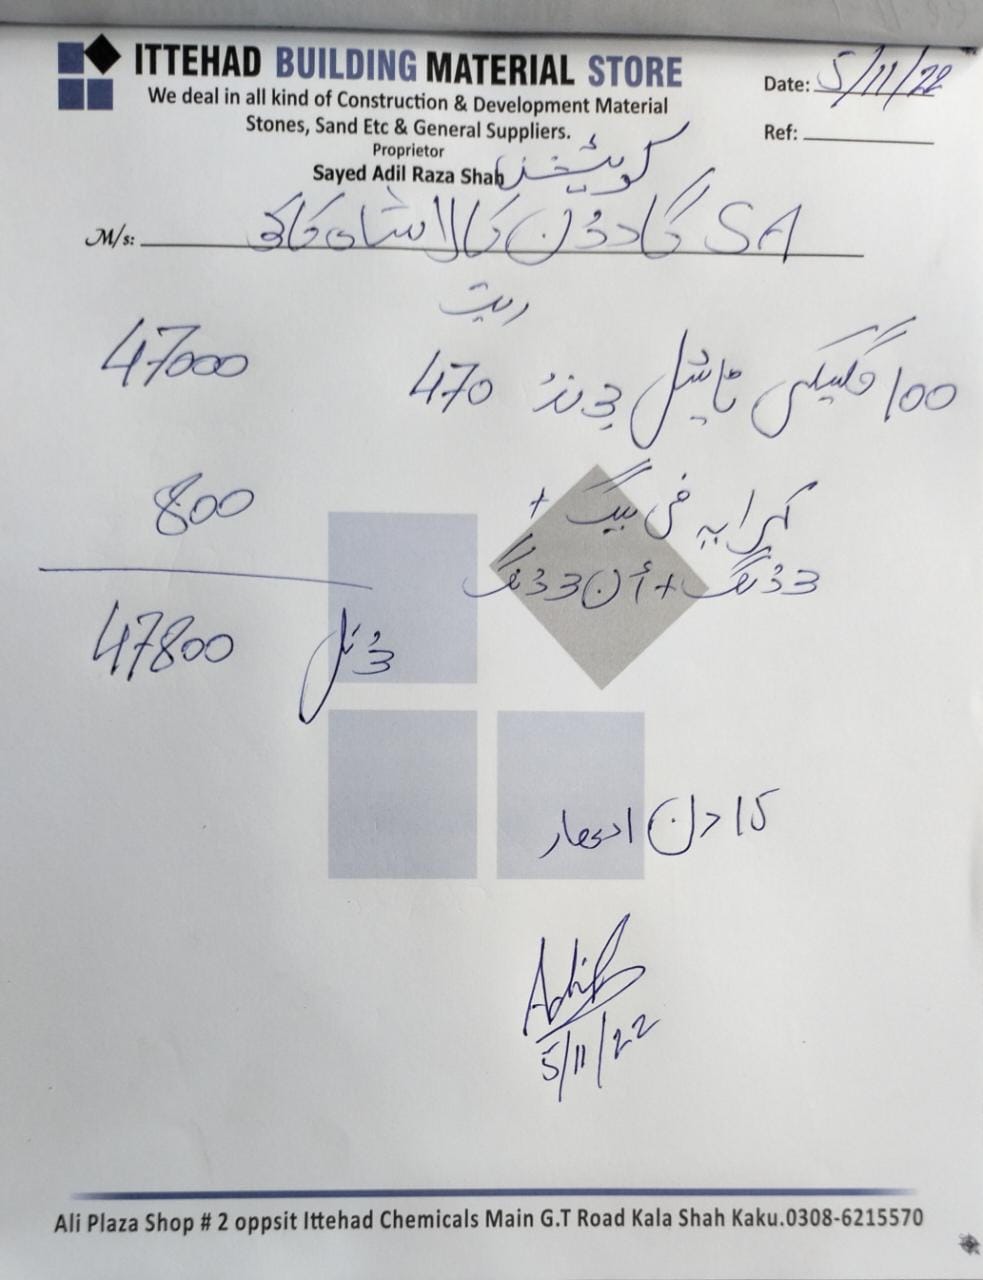 ITTEHAD BUILDING MATERIAL STORE
We deal in all kind of Construction & Development Material
Stones, Sand Etc & General Suppliers.
Proprietor
Sayed Adil Raza Shah
Date: 5/11/22
Ref:
کوٹیشن
M/s: SA گارڈن کالا شاہ کاکو
ریت
100 470 47000
کرایہ فی بیگ + 800
47800
15 دن ادھار
Adil
5/11/22
Ali Plaza Shop # 2 oppsit Ittehad Chemicals Main G.T Road Kala Shah Kaku.0308-6215570